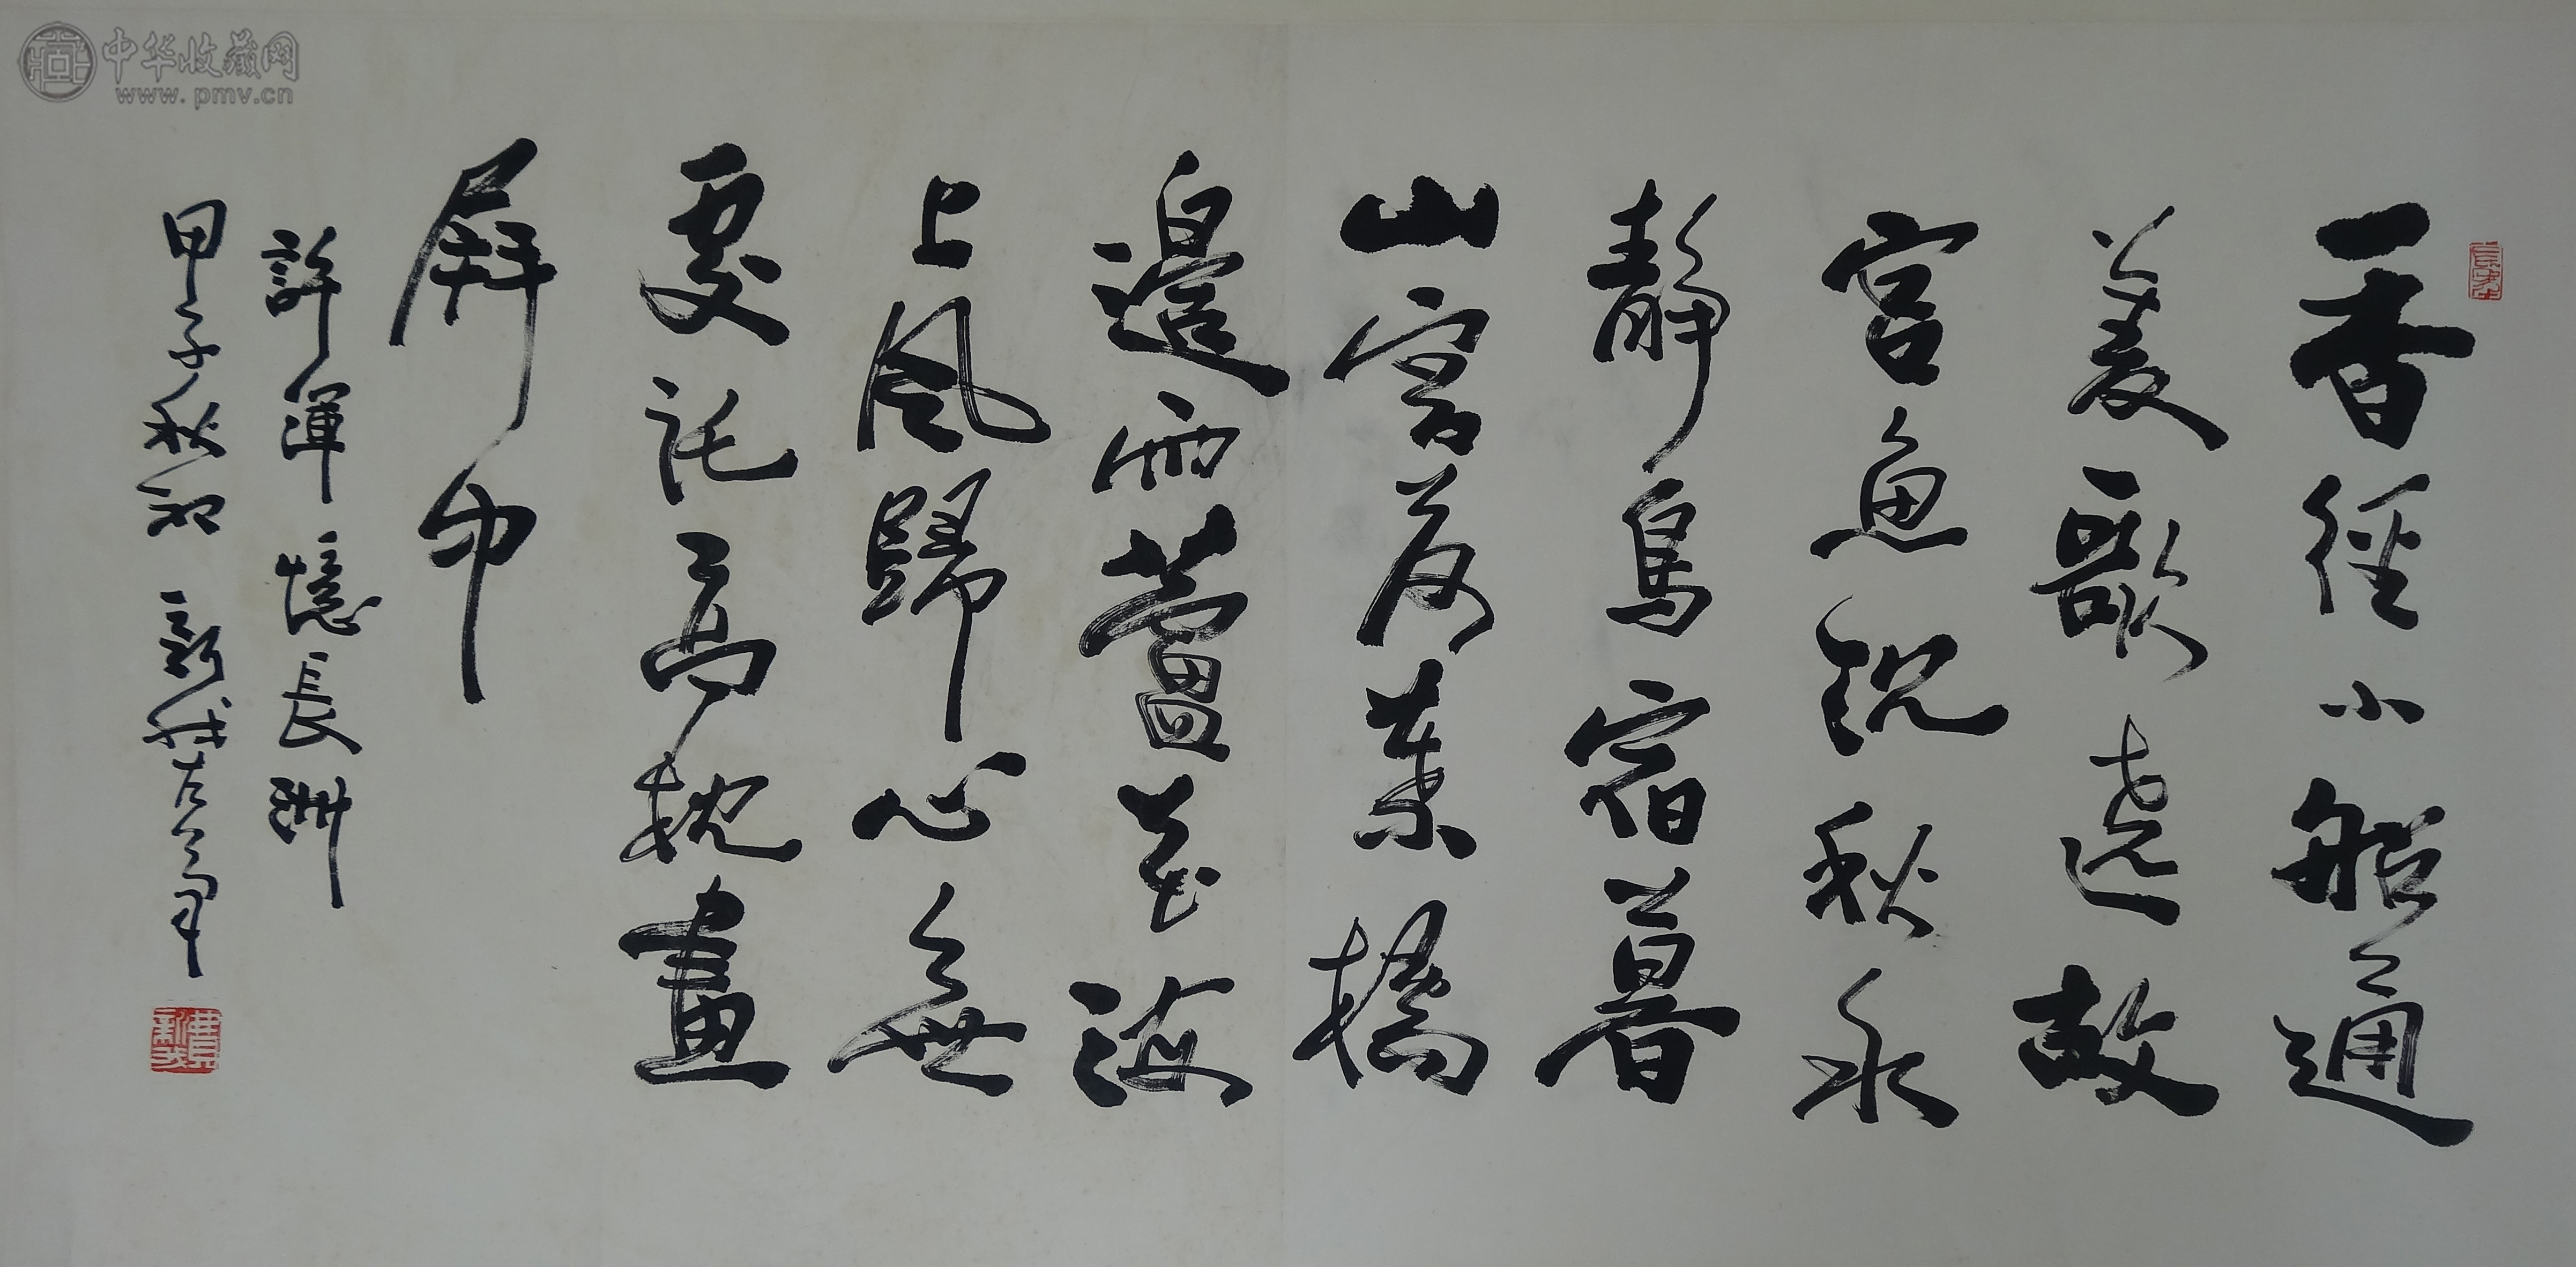 香徑小船通
菱歌遶故
宮魚沉秋水
静鳥宿暮
山空荷葉橋
邊雨蘆花海
上風歸心無
處託高枕畫
屏中
許渾憶長洲
甲子秋初 新我左筆
中华收藏网
www.pmv.cn